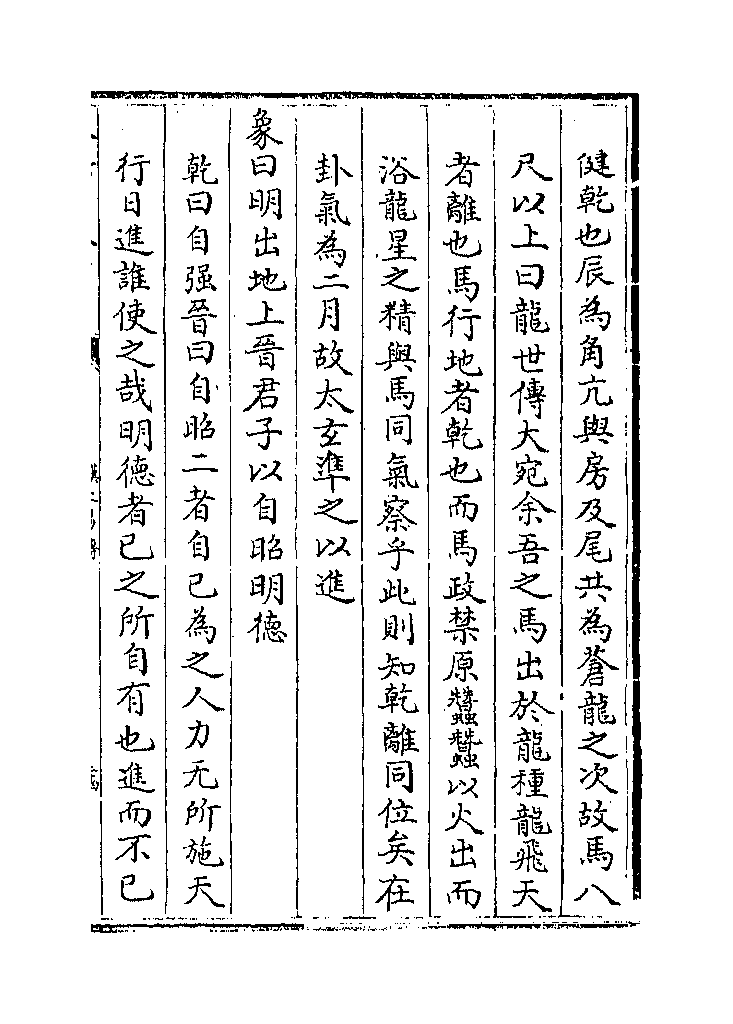 健乾也辰為角亢與房及尾共為蒼龍之次故馬八
尺以上曰龍世傳大宛余吾之馬出於龍種龍飛天
者離也馬行地者乾也而馬政禁原蠶蠶以火出而
浴龍星之精與馬同氣察乎此則知乾離同位矣在
卦氣為二月故太玄準之以進
象曰明出地上晉君子以自昭明德
乾曰自强晉曰自昭二者自己為之人力无所施天
行日進誰使之哉明德者已之所自有也進而不已